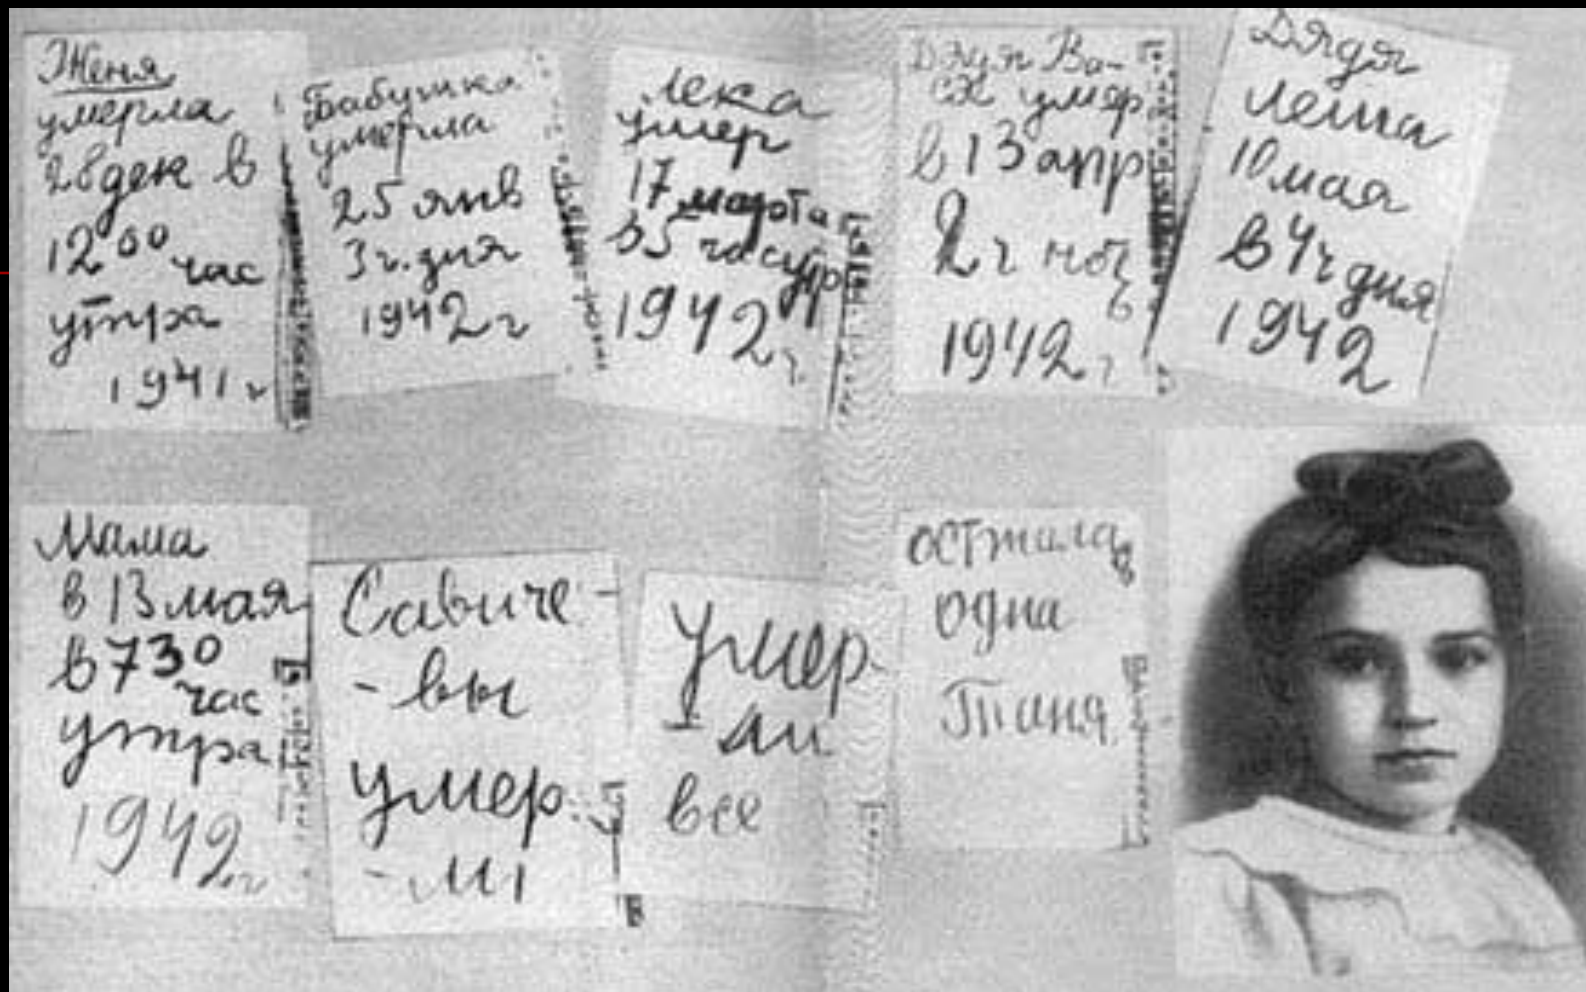 Женя
умерла
28 дек в
12 00 час
утра
1941 г
Бабушка
умерла
25 янв
3 ч. дня
1942 г
Лека
умер
17 марта
в 5 час утр
1942 г.
Дядя Ва-
ся умер
в 13 апр
2 ч ночь
1942 г
Дядя
Леша
10 мая
в 4 ч дня
1942
Мама
в 13 мая
в 7 30
час
утра
1942 г
Савиче-
-вы
умер
-ли
Умер-
-ли
все
Осталась
одна
Таня